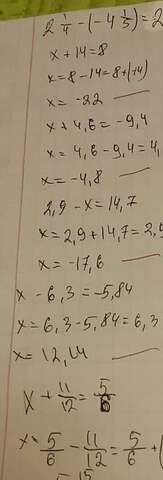 2 1/4 - (-4 1/5) = 2
x + 14 = 8
x = 8 - 14 = 8 + (-14)
x = -22
x + 4,6 = -9,4
x = 4,6 - 9,4 = 4,
x = -4,8
2,9 - x = 14,7
x = 2,9 + 14,7 = 2,9
x = -17,6
x - 6,3 = -5,84
x = 6,3 - 5,84 = 6,3
x = 12,14
x + 11/12 = 5/6
x = 5/6 - 11/12 = 5/6 + (